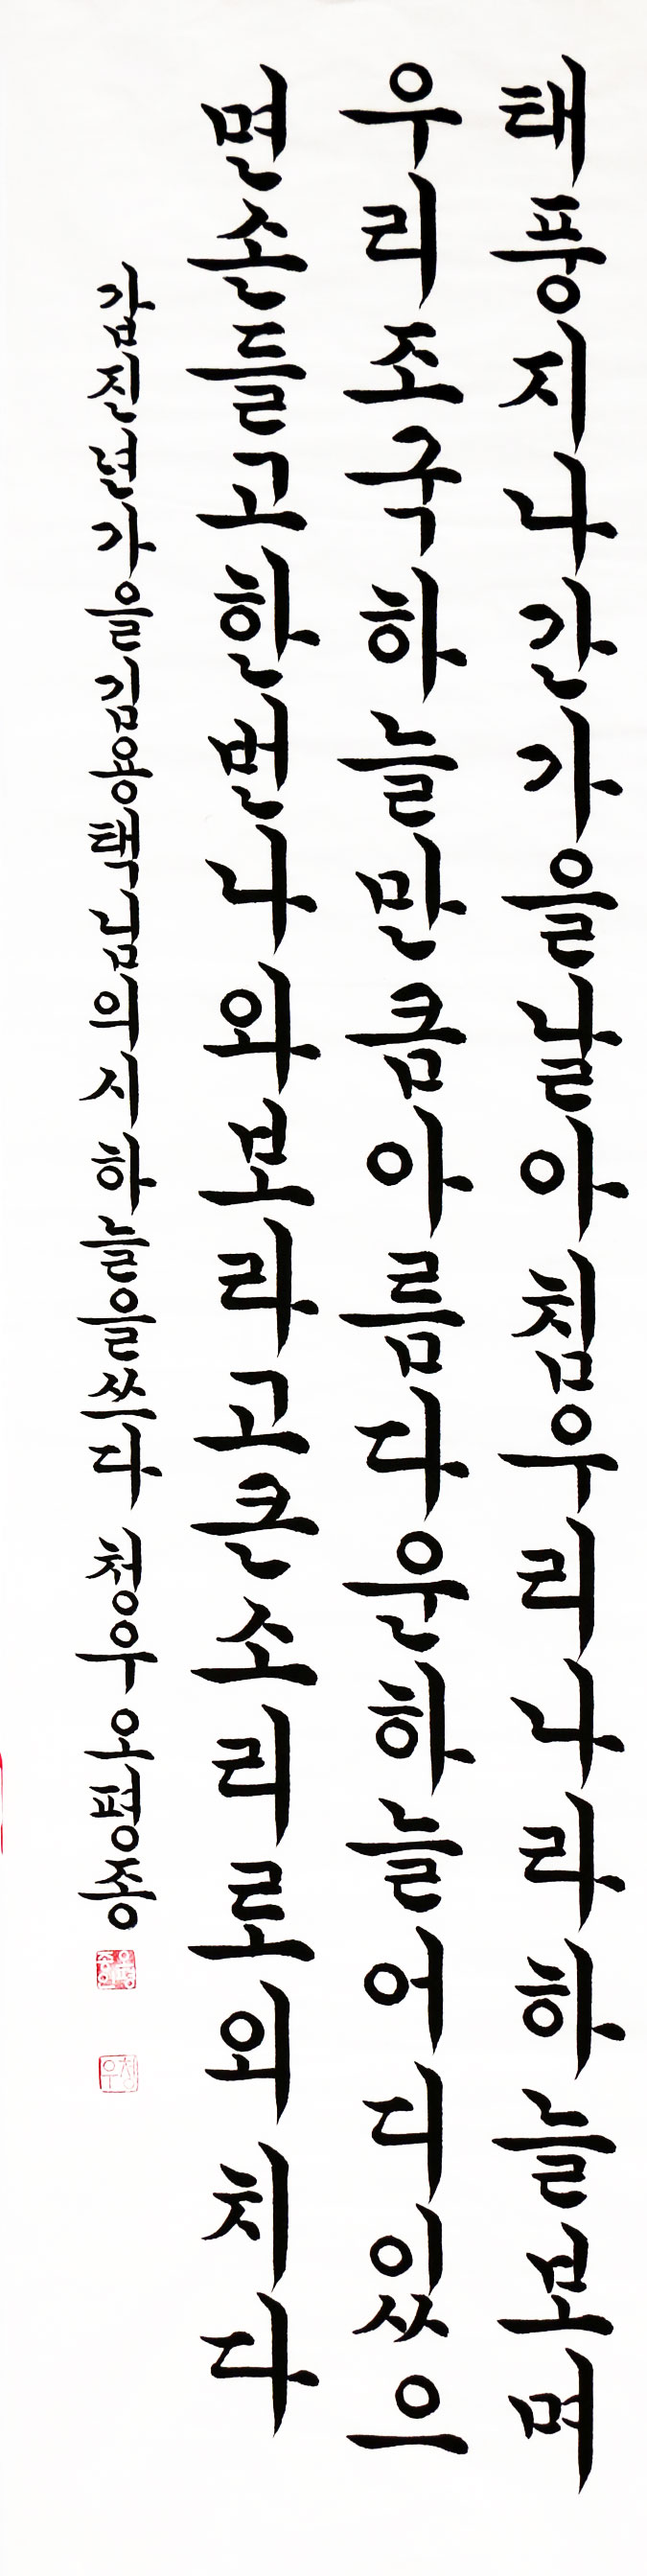 태풍지나간가을날아침우리나라하늘보며
우리조국하늘만큼아름다운하늘어디있으
면손들고한번나와보라고큰소리로외치다
갑진년가을김용택님의시하늘을쓰다 청우오평종